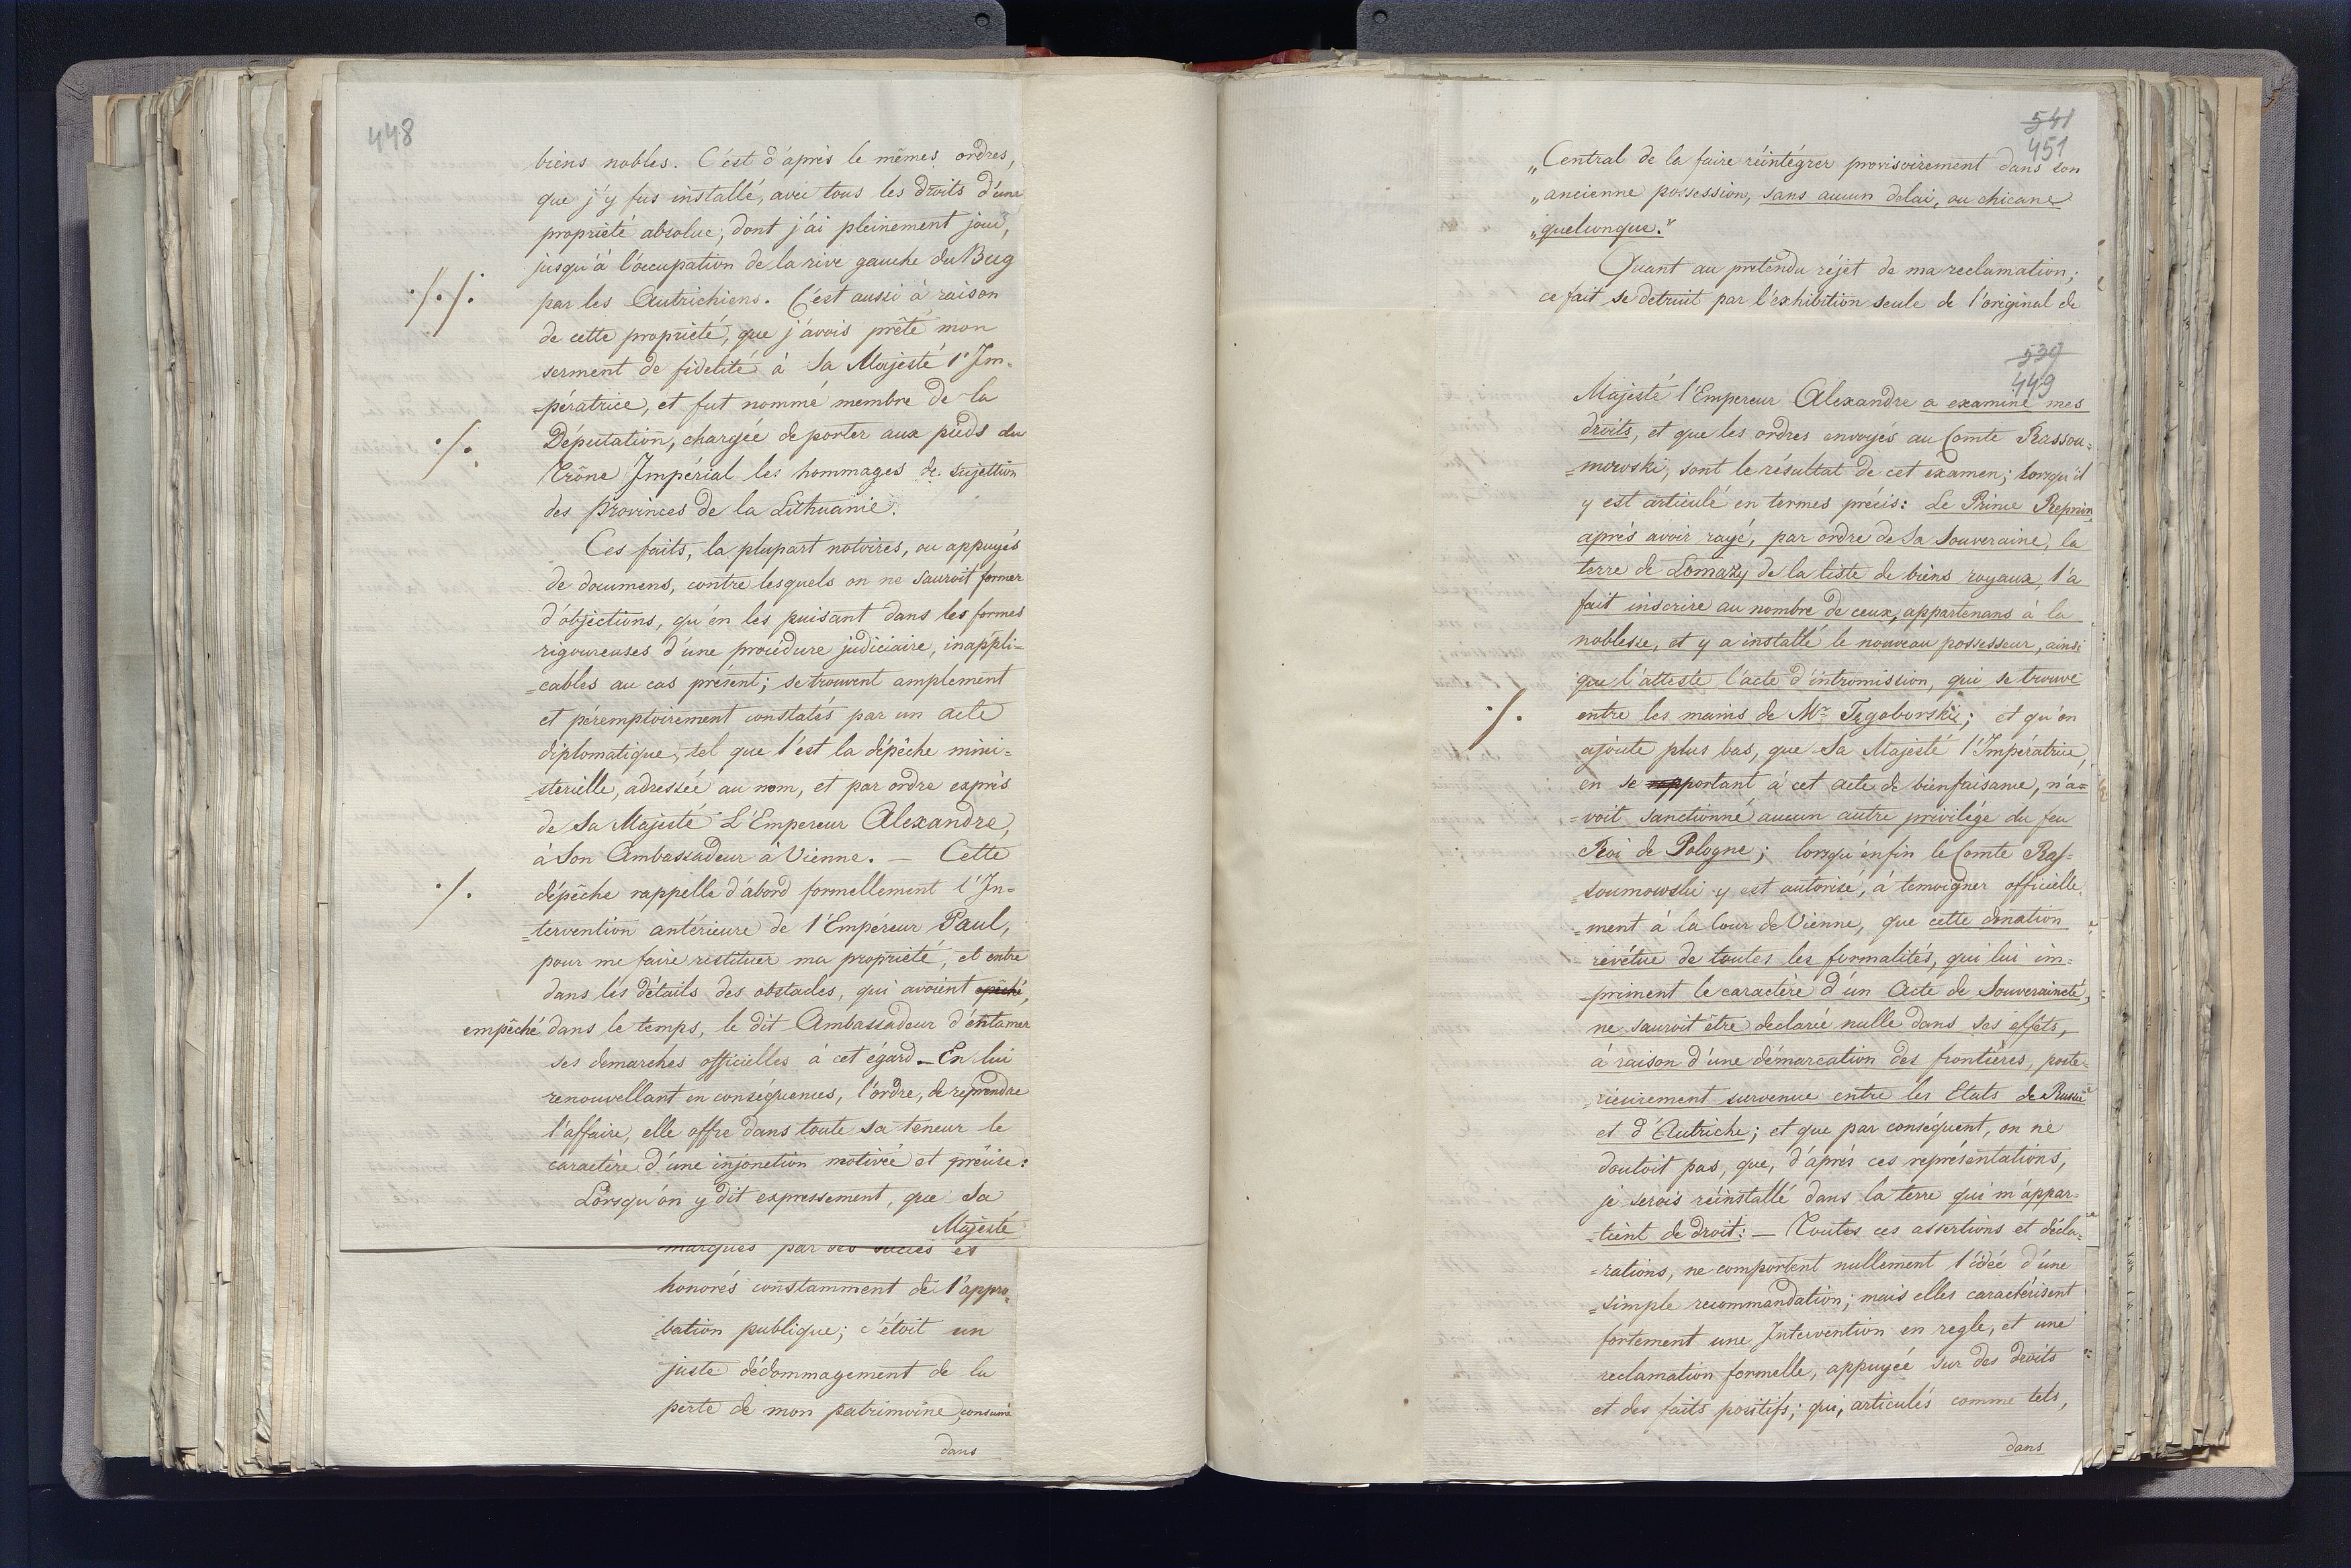 448
biens nobles. C'est d'après le mêmes ordres,
que j'y fus installé, avec tous les droits d'une
propriété absolue, dont j'ai pleinement joui,
jusqu'à l'occupation de la rive gauche du Bug
par les Autrichiens. C'est aussi à raison
de cette propriété, que j'avois prêté mon
serment de fidelité à Sa Majesté l'Im-
-pératrice, et fut nommé membre de la
Députation, chargée de porter aux pieds du
Trône Impérial les hommages de sujettion
des Provinces de la Lithuanie.
Ces faits, la plupart notoires, ou appuyés
de documens, contre lesquels on ne sauroit former
d'objections, qu'en les puisant dans les formes
rigoureuses d'une procédure judiciaire, inappli=
=cables au cas présent; se trouvent amplement
et péremptoirement constatés par un acte
diplomatique, tel que l'est la dépêche mini=
=sterielle, adressée au nom, et par ordre exprès
de Sa Majesté L'Empereur Alexandre,
à Son Ambassadeur à Vienne. — Cette
dépêche rappelle d'abord formellement l'In=
=tervention antérieure de l'Empéreur Paul,
pour me faire restituer ma propriété, et entre
dans les détails des obstacles, qui avoient
empêché dans le temps, le dit Ambassadeur d'entamer
ses demarches officielles à cet égard — En lui
renouvellant en conséquences, l'ordre, de reprendre
l'affaire, elle offre dans toute sa teneur le
caractère d'une injonction motivée et précise:
Lorsqu'on y dit expressement, que Sa
Majesté
marqués par des succès et
honorés constamment de l'appro=
bation publique; c'étoit un
juste dédommagement de la
perte de mon patrimoine, consumé
dans
541
451
"Central de la faire réintégrer provisoirement dans son
"ancienne possession, sans aucun delai, ou chicane
"quelconque."
Quant au pretendu réjet de ma reclamation;
ce fait se detruit par l'exhibition seule de l'original de
539
449
Majesté l'Empereur Alexandre a examiné mes
droits, et que les ordres envoyés au Comte Rassou=
=mowski, sont le résultat de cet examen; lorsqu'il
y est articulé en termes précis: Le Prince Repnin,
après avoir rayé, par ordre de Sa Souveraine, la
terre de Lomazy de la liste de biens royaux, l'a
fait inscrire au nombre de ceux, appartenans à la
noblesse, et y a installé le nouveau possesseur, ainsi
que l'atteste l'acte d'intromission, qui se trouve
entre les mains de Mr Tęgoborski; et qu'on
ajoute plus bas, que Sa Majesté l'Impératrice,
en se rapportant à cet acte de bienfaisance, n'a=
=voit sanctionné aucun autre privilége du feu
Roi de Pologne; lorsqu'enfin le Comte Ras=
soumowski y est autorisé, à temoigner officielle
=ment à la Cour de Vienne, que cette donation
revétue de toutes les formalités, qui lui im=
=priment le caractère d'un Acte de Souveraineté,
ne sauroit être declarée nulle dans ses effets,
à raison d'une démarcation des frontières, poste=
=rieurement survenue entre les Etats de Russie
et d'Autriche; et que par conséquent, on ne
doutoit pas, que, d'après ces représentations,
je serois réinstallé dans la terre qui m'appar=
=tient de droit: — Toutes ces assertions et décla=
=rations, ne comportent nullement l'idée d'une
=simple recommandation; mais elles caractérisent
fortement une Intervention en regle, et une
reclamation formelle, appuyée sur des droits
et des faits positifs; qui, articulés comme tels,
dans